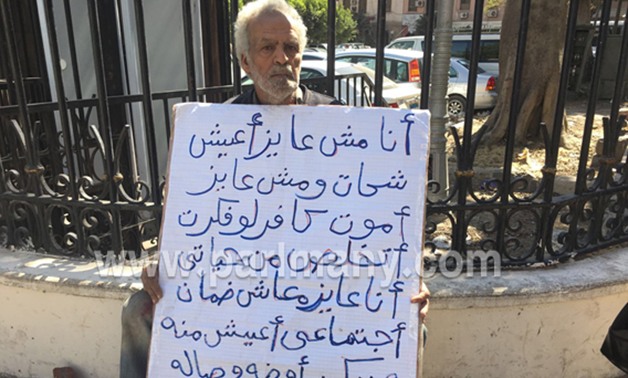 أنا مش عايز أعيش
شحات ومش عايز
أموت كافر لو فكرت
أتخلص من حياتى
www.parlmany.com
أنا عايز معاش ضمان
أجتماعى أعيش منه
أوضه وصاله